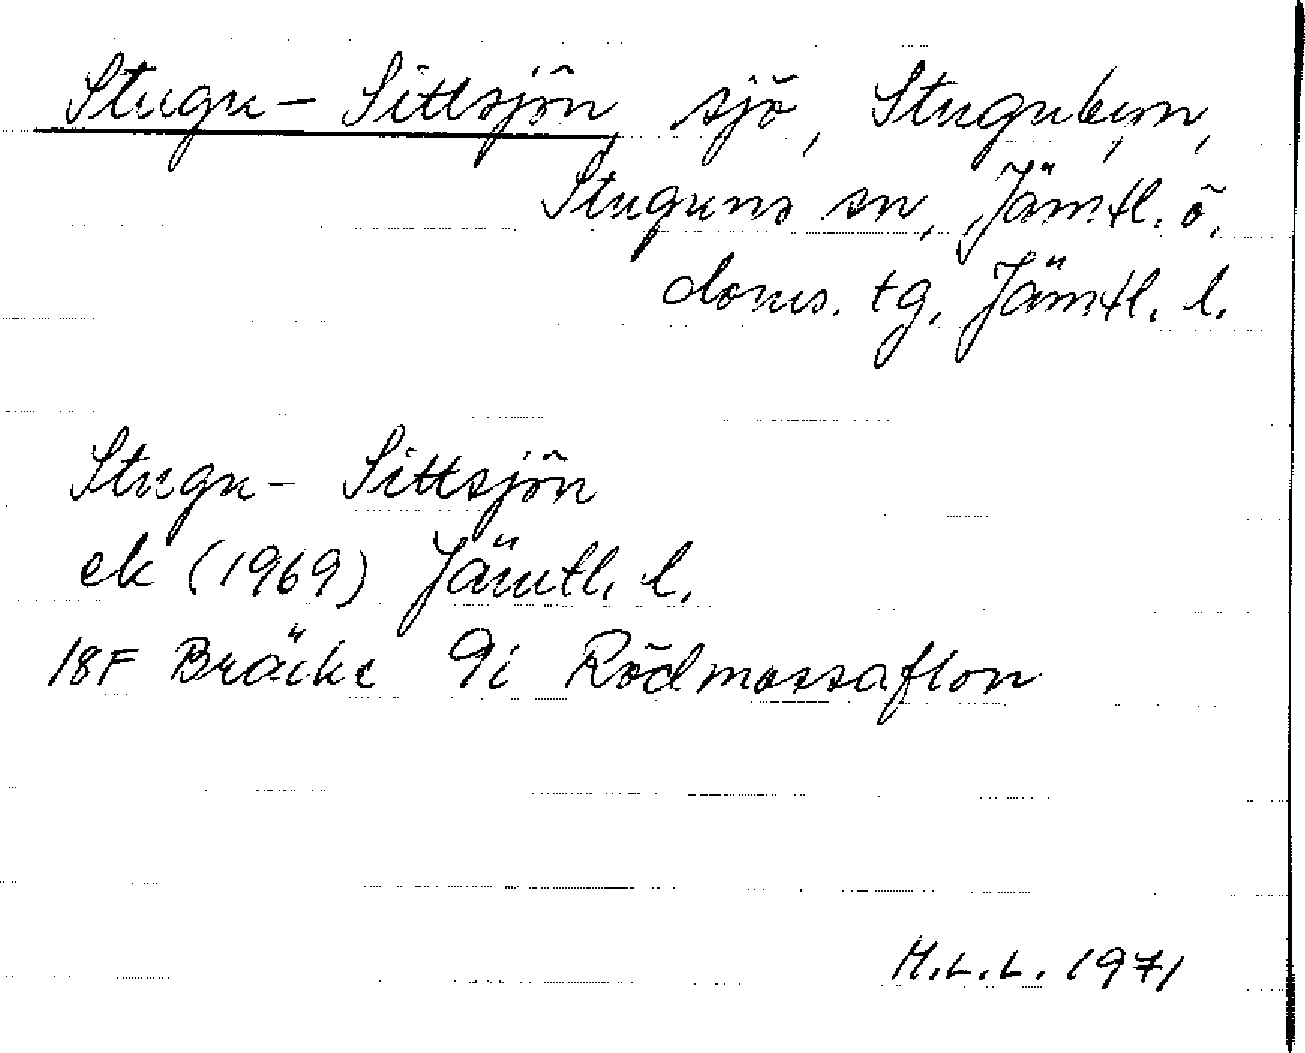 Stugu- Sittsjön, sjö, Stugubyn,
Stuguns sn, Jämtl. ö.
doms. tg, Jämtl. l.
Stugu- Sittsjön
ek (1969) Jämtl. l.
18F Bräcke 9i Rödmossaflon
M.L.L. 1971